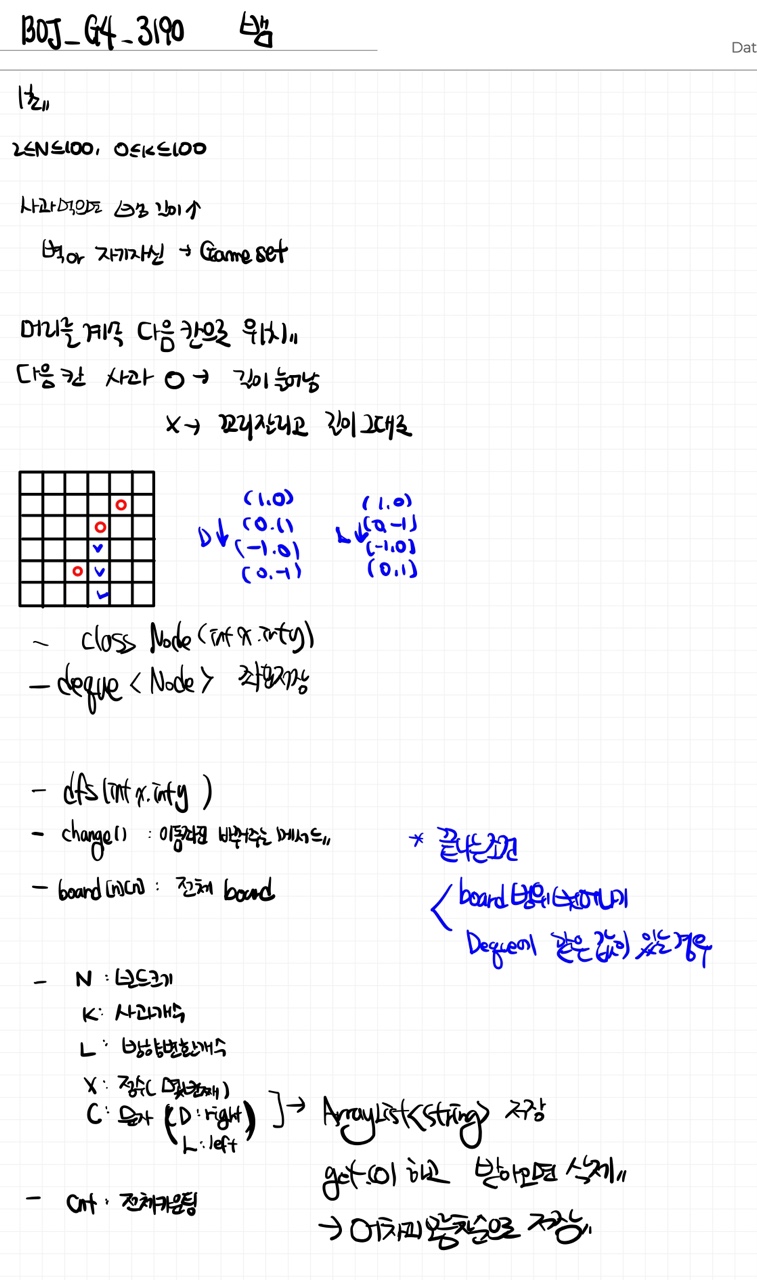 BOJ_G4_3190 뱀
Dat
1초
2≤N≤100, 0≤K≤100
사과먹으면 뱀 길이↑
벽or 자기자신 → Game set
머리를 계속 다음 칸으로 위치
다음 칸 사과 O → 길이 늘어남
X → 꼬리잘리고 길이 그대로
D↓ (1.0) (0.1) (-1.0) (0.-1)
L↓ (1.0) (0.-1) (-1.0) (0.1)
- class Node (int x.int y)
- deque <Node> 좌표저장
- dfs(int x.int y)
- change() : 이동좌표 바꿔주는 메서드
- board[n][n] : 전체 board
* 끝나는조건
board 범위 벗어나기
Deque에 같은 값이 있는 경우
- N : 보드크기
K : 사과개수
L : 방향변환개수
X : 정수( 몇번째)
C : 문자 (D : right
L : left)
→ ArrayList<string> 저장
get(0) 하고 받아오면 삭제
→ 어차피 오름차순으로 저장
- cnt : 전체카운팅